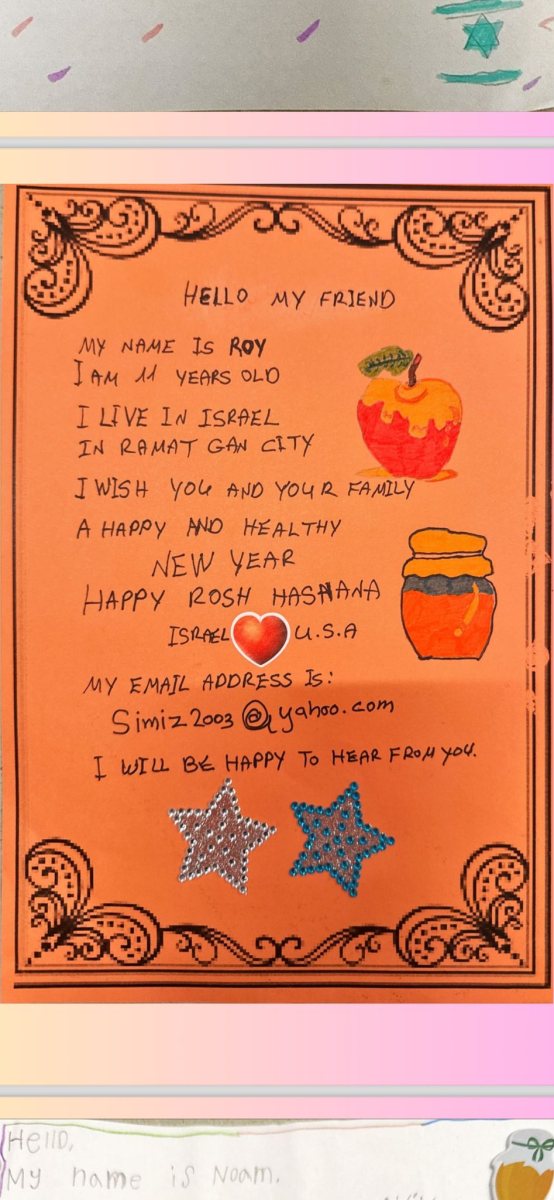 HELLO MY FRIEND
MY NAME IS ROY
I AM 11 YEARS OLD
I LIVE IN ISRAEL
IN RAMAT GAN CITY
I WISH YOU AND YOUR FAMILY
A HAPPY AND HEALTHY
NEW YEAR
HAPPY ROSH HASHANA
ISRAEL U.S.A
MY EMAIL ADDRESS IS:
Simiz2003@yahoo.com
I WILL BE HAPPY TO HEAR FROM YOU.
Hello,
My name is Noam.